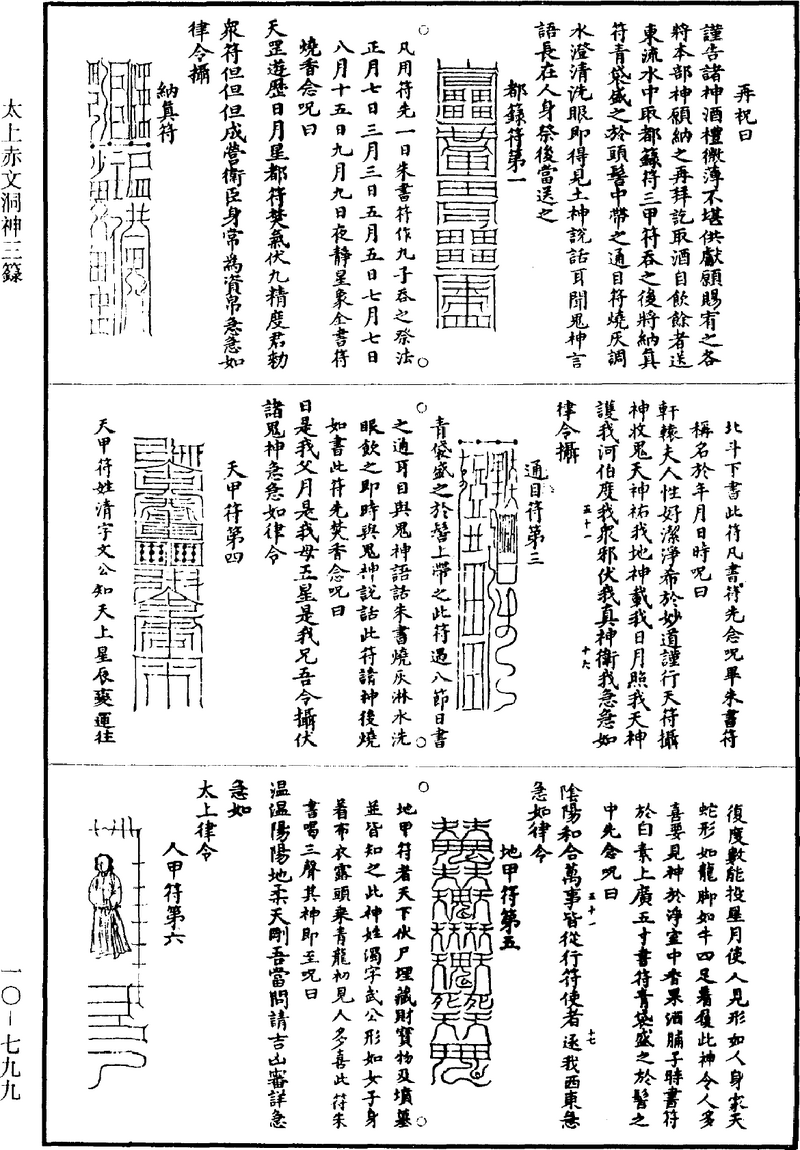 再祝曰
謹告諸神酒禮微薄不堪供獻願賜宥之各
將本部神願納之再拜訖取酒自飲餘者送
東流水中取都籙符三甲符吞之後將納真
符青袋盛之於頭髻中帶之通目符燒灰調
水澄清洗眼即得見土神說話耳聞鬼神言
語長在人身祭後當送之
都籙符第一
凡用符先一日朱書符作九子吞之祭法
正月七日三月三日五月五日七月七日
八月十五日九月九日夜靜星象全書符
燒香念呪曰
天罡遊歷日月星都符焚氣伏九精度君勅
衆符但但但成營衛臣身常為資帛急急如
律令攝
納真符
北斗下書此符凡書符先念呪畢朱書符
稱名於年月日時呪曰
軒轅夫人性好潔淨希於妙道謹行天符攝
神收鬼天神祐我地神載我日月照我天神
護我河伯度我眾邪伏我真神衛我急急如
律令攝
五十一
十六
通目符第三
青袋盛之於髻上帶之此符遇八節日書
之通耳目與鬼神語話朱書燒灰淋水洗
眼飲之即時與鬼神說話此符諸神後燒
如書此符先焚香念呪曰
日是我父月是我母五星是我兄吾令攝伏
諸鬼神急急如律令
天甲符第四
天甲符姓清字文公知天上星辰奕運往
復度數能投星月使人見形如人身衣天
蛇形如龍脚如牛四足着履此神令人多
喜要見神於淨室中香果酒脯子時書符
於白素上廣五寸書符青袋盛之於髻之
中先念呪曰
陰陽和合萬事皆從行符使者逐我西東急
急如律令
五十一
十七
地甲符第五
地甲符者天下伏尸埋藏財寶物及墳墓
並皆知之此神姓濁字武公形如女子身
着布衣露頭乘青龍初見人多喜此符朱
書喝三聲其神即至呪曰
温温陽陽地柔天剛吾當問請吉凶審詳急
急如
太上律令
人甲符第六
太上赤文洞神三籙
一〇-七九九